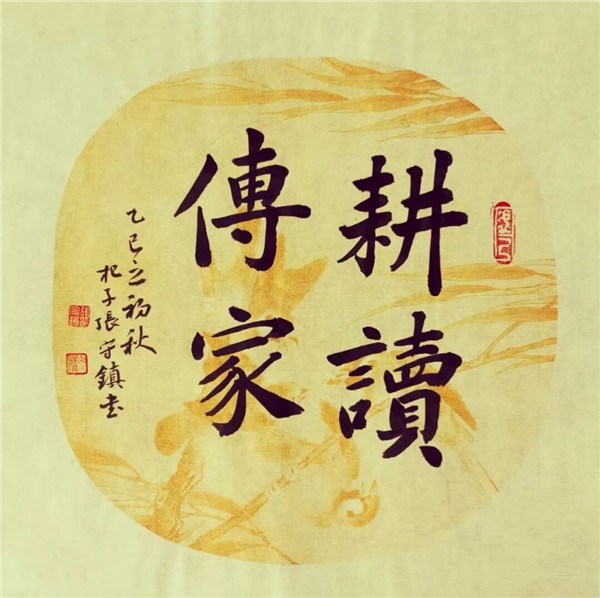 耕讀
傳家
乙巳之初秋
杞子張守鎮书